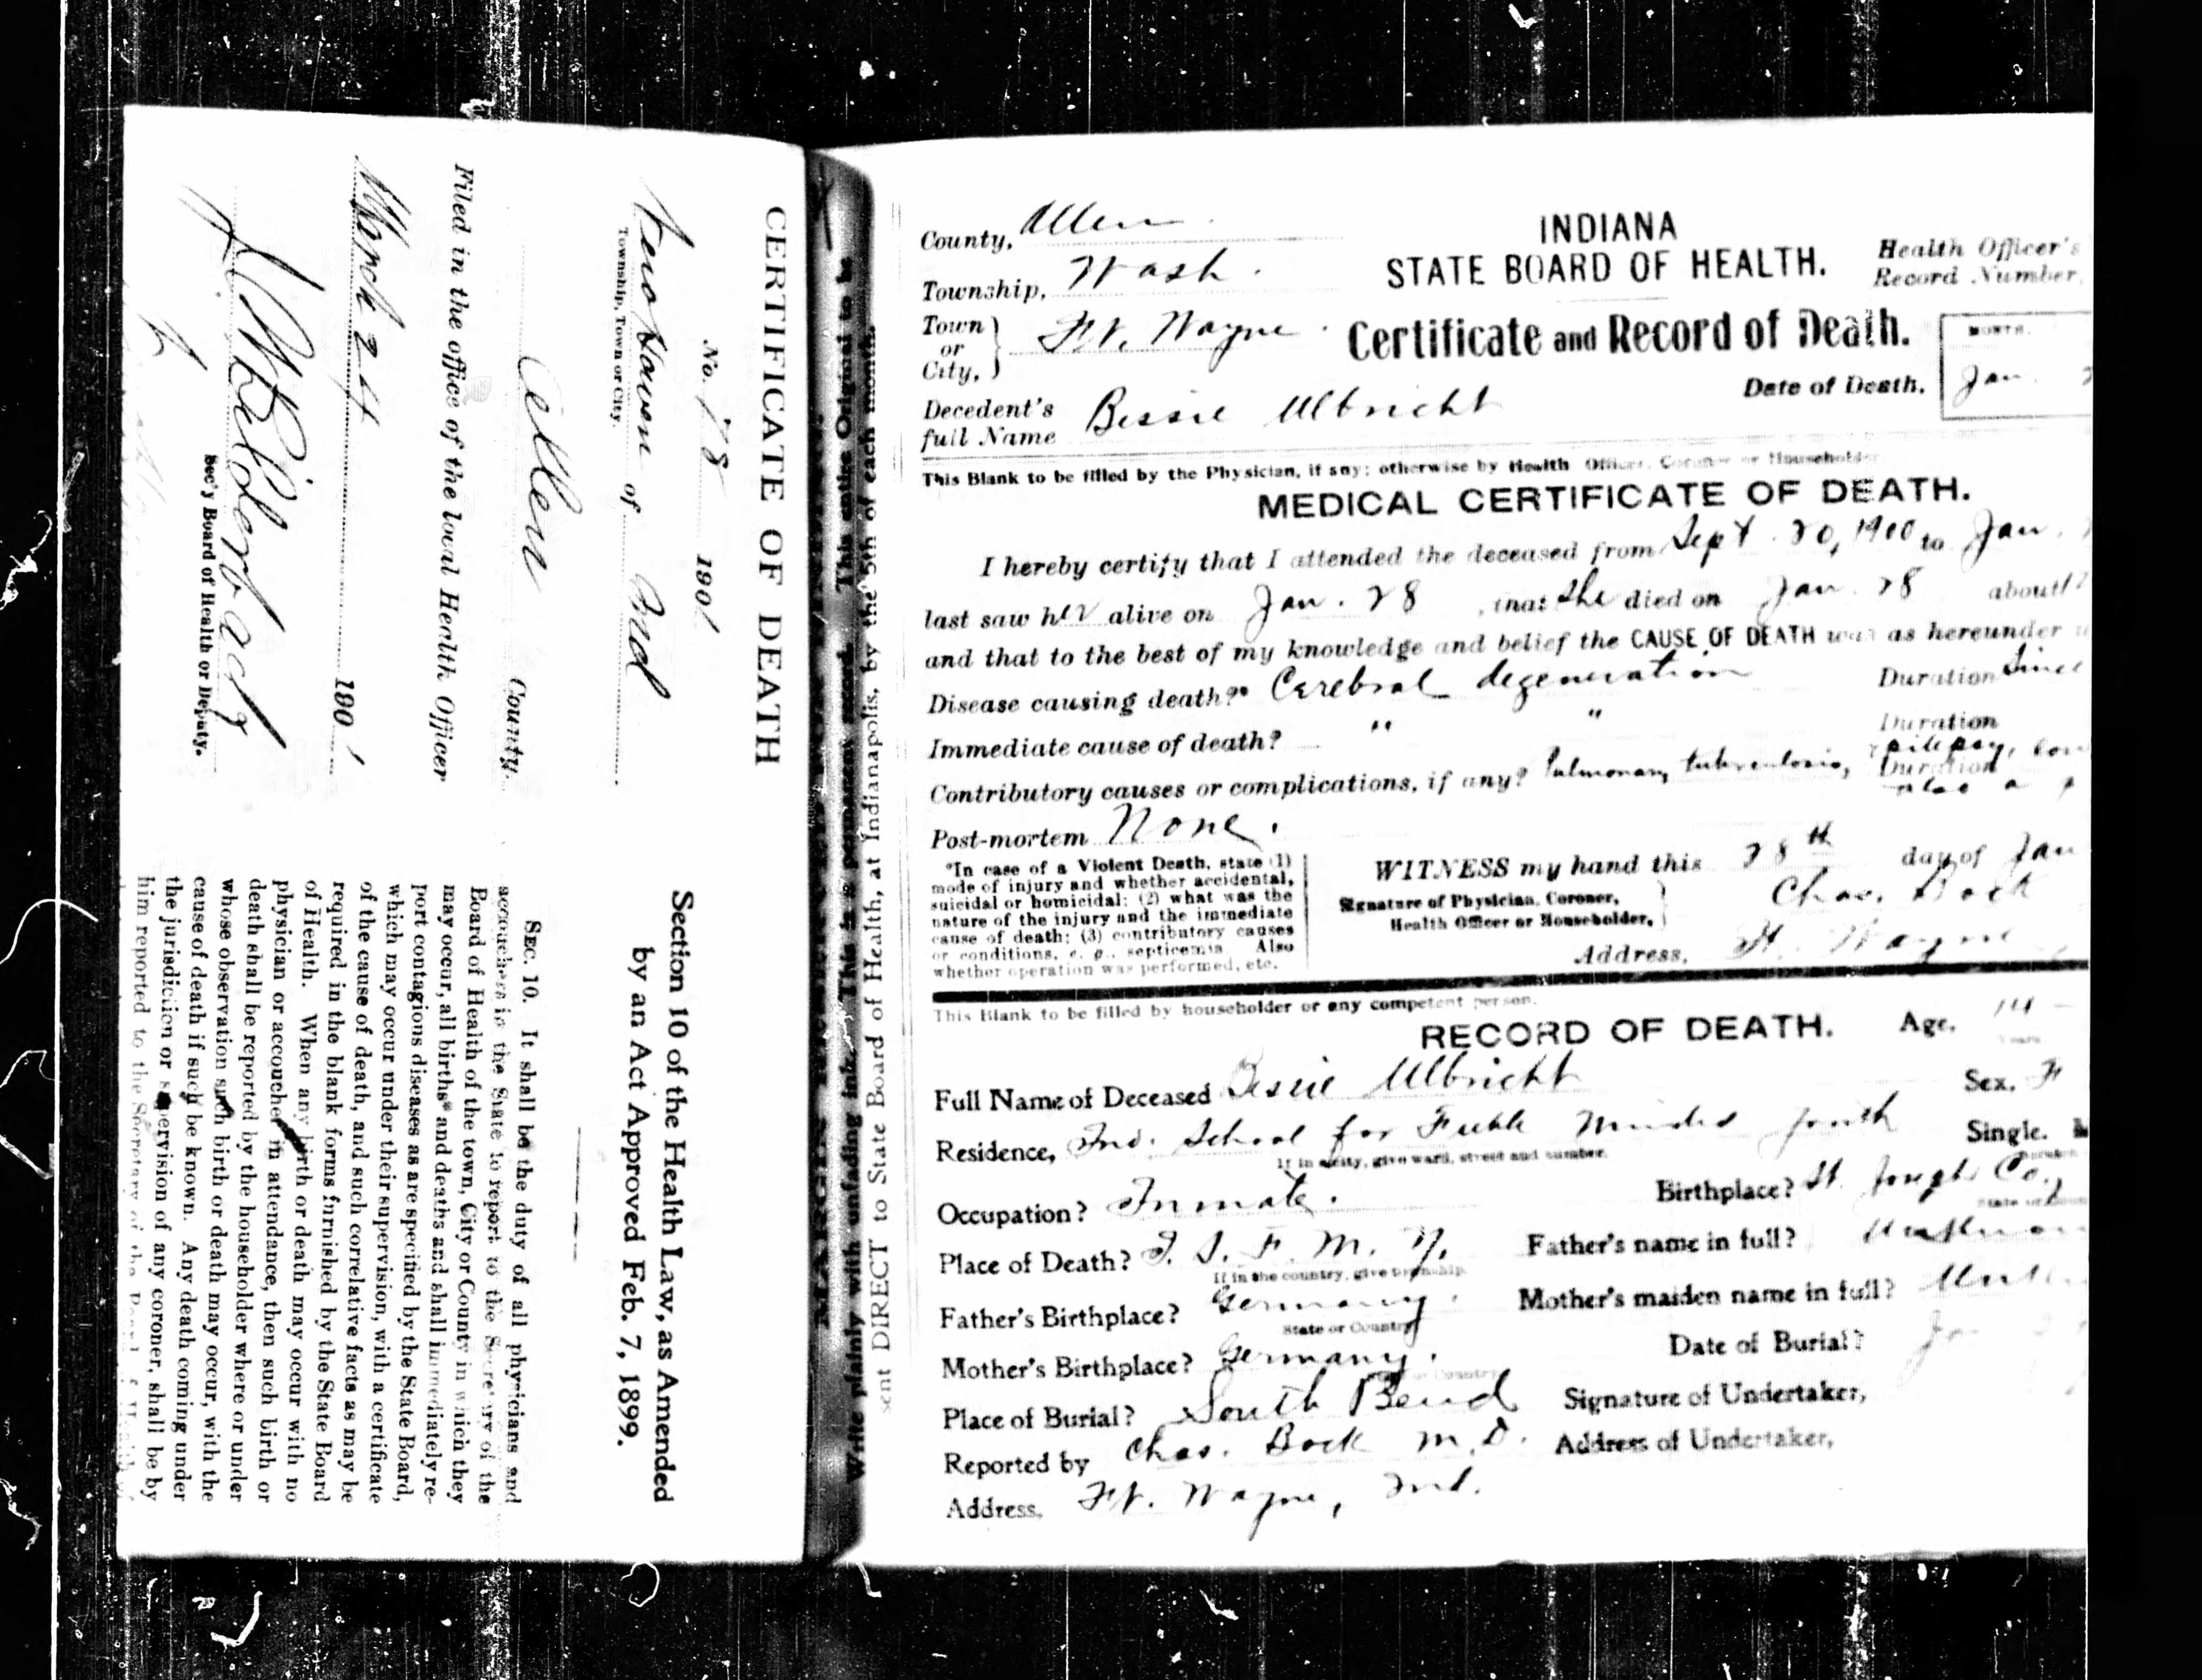 CERTIFICATE OF DEATH
No. 78 1901
New Haven of Ind
Township, Town or City.
Allen County.
Filed in the office of the local Health Officer
March 24 1901
Sec'y Board of Health or Deputy.
Section 10 of the Health Law, as Amended
by an Act Approved Feb. 7, 1899.
SEC. 10. It shall be the duty of all physicians and
accouchers in the State to report to the Secretary of the
Board of Health of the town, City or County in which they
may occur, all births and deaths and shall immediately re-
port contagious diseases as are specified by the State Board,
which may occur under their supervision, with a certificate
of the cause of death, and such correlative facts as may be
required in the blank forms furnished by the State Board
of Health. When any birth or death may occur with no
physician or accoucher in attendance, then such birth or
death shall be reported by the householder where or under
whose observation such birth or death may occur, with the
cause of death if such be known. Any death coming under
the jurisdiction or supervision of any coroner, shall be by
him reported to the Secretary of the Board of Health of
Write plainly with unfading ink. This is a permanent record. This entire Original to be
sent DIRECT to State Board of Health, at Indianapolis, by the 5th of each month.
County, Allen
INDIANA
STATE BOARD OF HEALTH.
Health Officer's
Record Number,
Township, Wash.
Town or City, Ft. Wayne
Certificate and Record of Death.
MONTH.
Date of Death, Jan.
Decedent's full Name Bessie Ulbricht
This Blank to be filled by the Physician, if any; otherwise by Health Officer, Coroner or Householder
MEDICAL CERTIFICATE OF DEATH.
I hereby certify that I attended the deceased from Sept. 20, 1900 to Jan.
last saw her alive on Jan. 28, that she died on Jan. 28 about
and that to the best of my knowledge and belief the CAUSE OF DEATH was as hereunder
Disease causing death?* Cerebral degeneration Duration Since
Immediate cause of death? " " Duration
Contributory causes or complications, if any? Pulmonary tuberculosis, epilepsy, Duration
also a
Post-mortem None.
*In case of a Violent Death, state (1)
mode of injury and whether accidental,
suicidal or homicidal; (2) what was the
nature of the injury and the immediate
cause of death; (3) contributory causes
or conditions, e. g., septicemia. Also
whether operation was performed, etc.
WITNESS my hand this 28th day of Jan
Signature of Physician, Coroner,
Health Officer or Householder, Chas. Bock
Address, Ft. Wayne
This Blank to be filled by householder or any competent person.
RECORD OF DEATH. Age, 14
Years
Full Name of Deceased Bessie Ulbricht Sex, F
Residence, Ind. School for Feeble Minded Youth Single.
If in a city, give ward, street and number.
Occupation? Inmate. Birthplace? St. Joseph Co.,
Place of Death? I. S. F. M. Y. Father's name in full?
If in the country, give township.
Father's Birthplace? Germany. Mother's maiden name in full?
State or Country
Mother's Birthplace? Germany. Date of Burial?
or Country
Place of Burial? South Bend Signature of Undertaker,
Reported by Chas. Bock M.D. Address of Undertaker,
Address, Ft. Wayne, Ind.